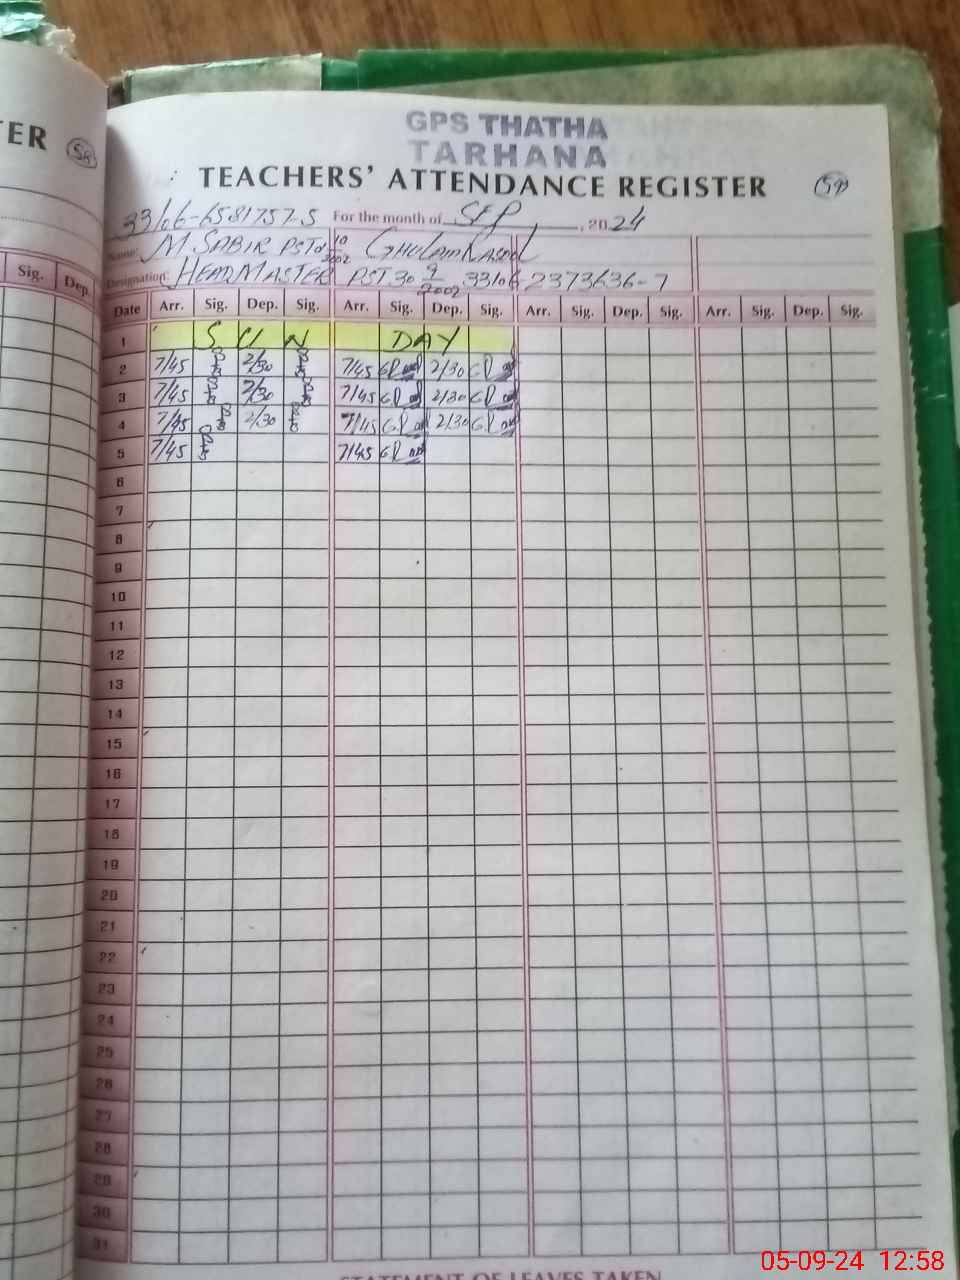 GPS THATHA
TARHANA
TER 58
TEACHERS' ATTENDANCE REGISTER 59
33106-6581757-5 For the month of SEP, 2024
Name: M.SABIR PST 10 2002 GHULAM RASOOL
Designation: HEADMASTER PST 30 9 2002 33106-2373636-7
Sig. Dep.
Date Arr. Sig. Dep. Sig. Arr. Sig. Dep. Sig. Arr. Sig. Dep. Sig. Arr. Sig. Dep. Sig.
1 S U N DAY
2 7/45 2/30 7/45 2/30
3 7/45 2/30 7/45 2/30
4 7/45 2/30 7/45 2/30
5 7/45 7/45
6
7
8
9
10
11
12
13
14
15
16
17
18
19
20
21
22
23
24
25
26
27
28
29
30
31
STATEMENT OF LEAVES TAKEN
05-09-24 12:58